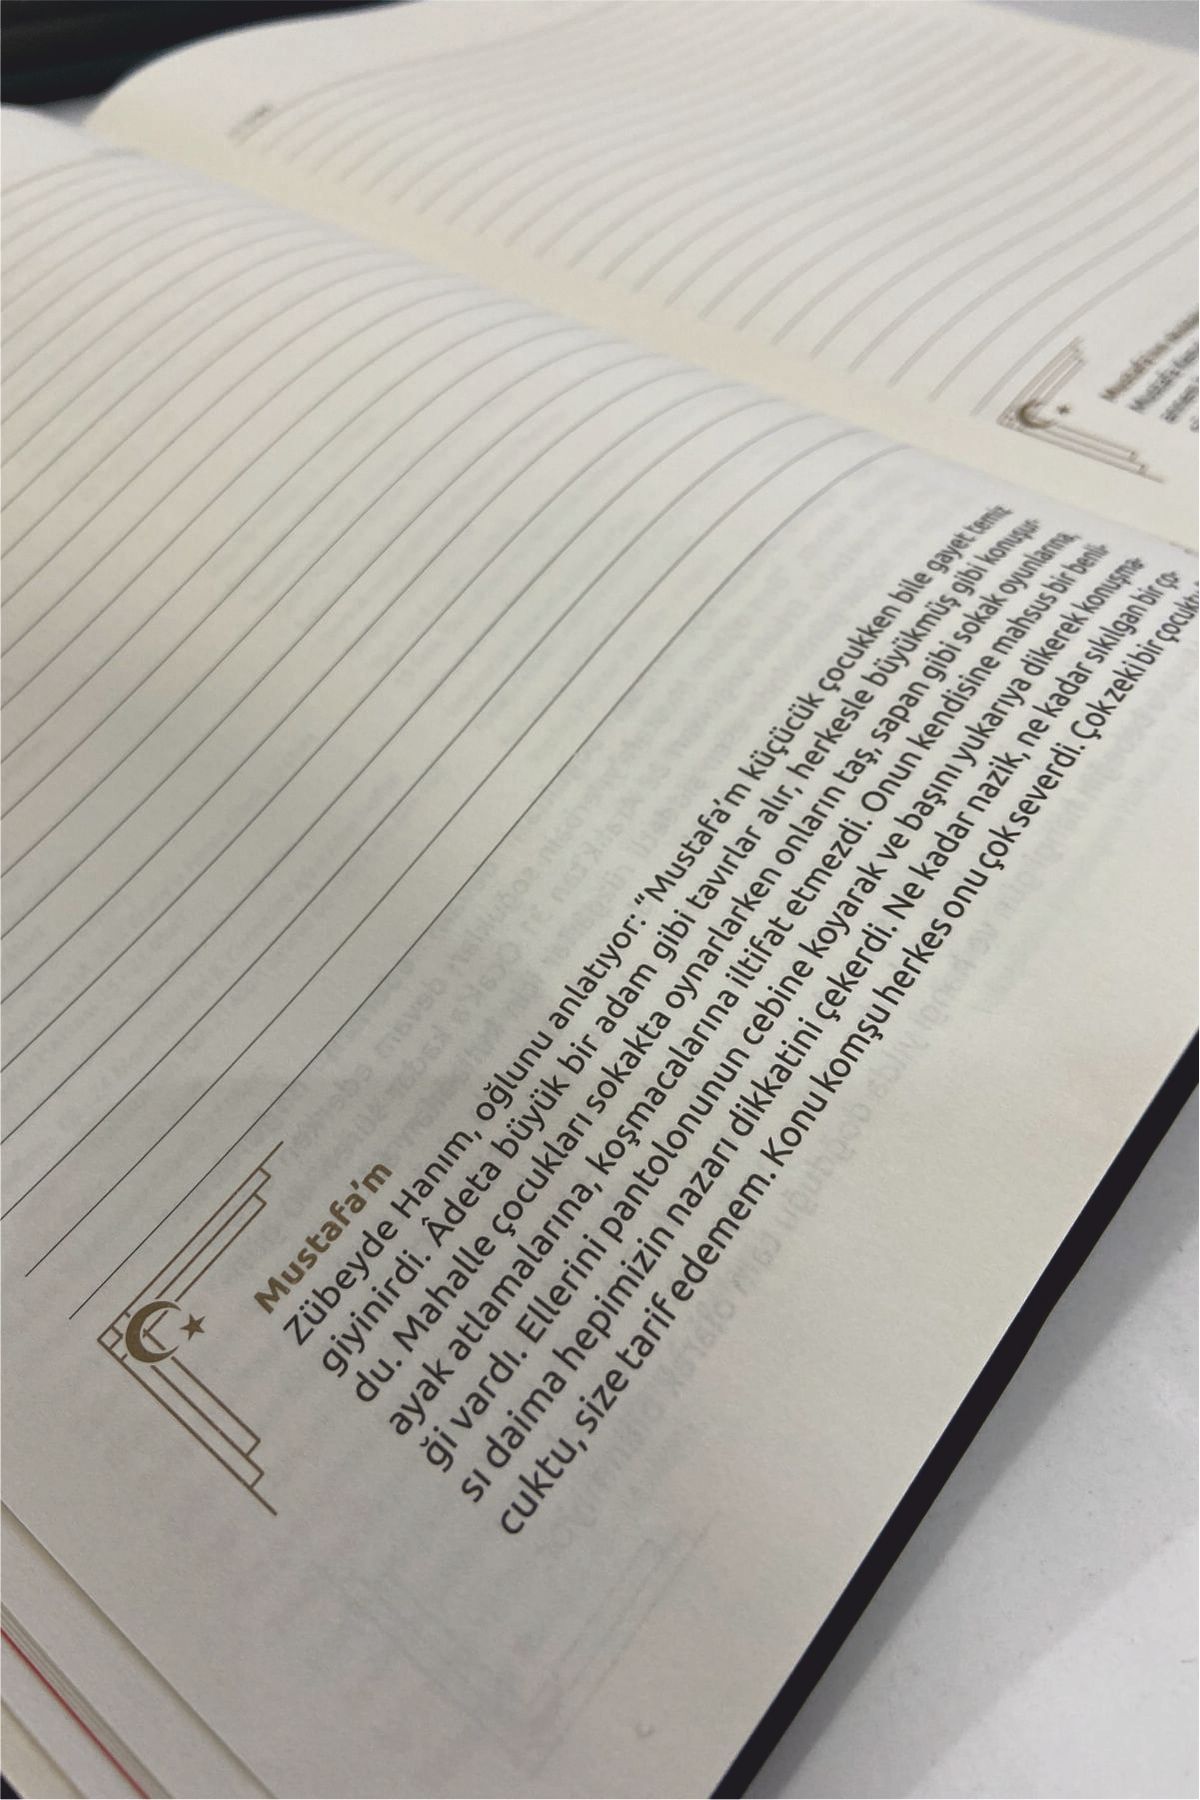 Mustafa'm
Zübeyde Hanım, oğlunu anlatıyor: “Mustafa'm küçücük çocukken bile gayet temiz
giyinirdi. Âdeta büyük bir adam gibi tavırlar alır, herkesle büyükmüş gibi konuşur-
du. Mahalle çocukları sokakta oynarlarken onların taş, sapan gibi sokak oyunlarına,
ayak atlamalarına, koşmacalarına iltifat etmezdi. Onun kendisine mahsus bir benli-
ği vardı. Ellerini pantolonunun cebine koyarak ve başını yukarıya dikerek konuşma-
sı daima hepimizin nazarı dikkatini çekerdi. Ne kadar nazik, ne kadar sıkılgan bir ço-
cuktu, size tarif edemem. Konu komşu herkes onu çok severdi. Çok zeki bir